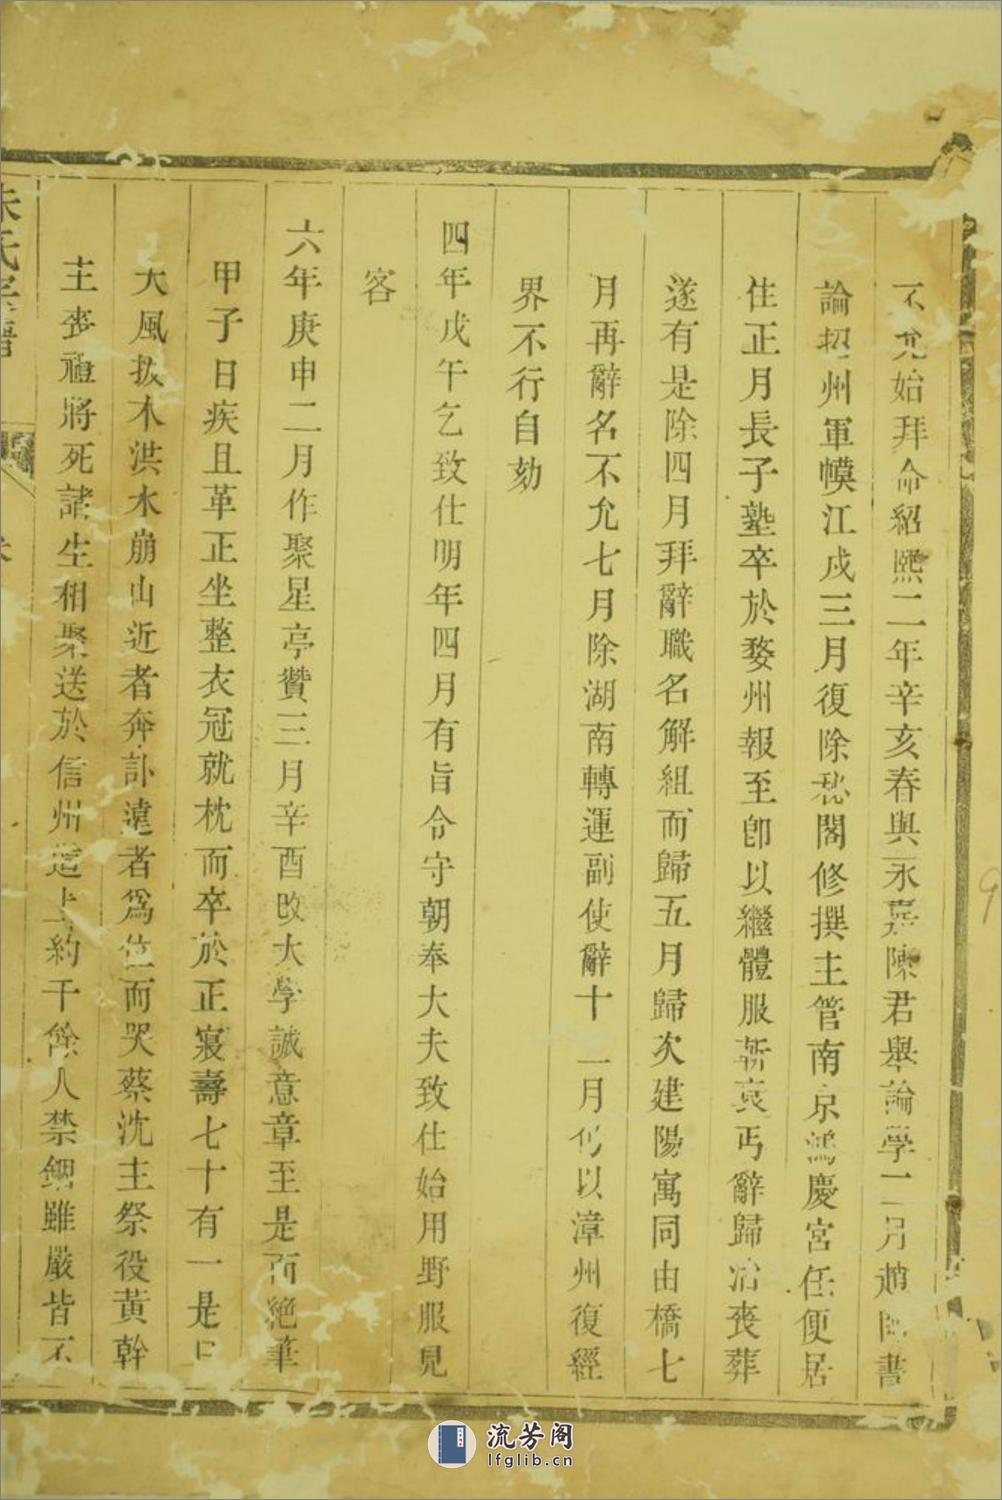 不允始拜命紹熙二年辛亥春與永嘉陳君舉論學二月趙書
論招州軍幙江戍三月復除秘閣修撰主管南京鴻慶宮任便居
住正月長子塾卒於婺州報至卽以繼體服斬哀丐辭歸治喪葬
遂有是除四月拜辭職名解組而歸五月歸次建陽寓同由橋七
月再辭名不允七月除湖南轉運副使辭十一月仍以漳州復經
界不行自劾
四年戊午乞致仕明年四月有旨令守朝奉大夫致仕始用野服見
客
六年庚申二月作聚星亭贊三月辛酉改大學誠意章至是而絕筆
甲子日疾且革正坐整衣冠就枕而卒於正寢壽七十有一是日
大風拔木洪水崩山近者奔訃遠者為位而哭蔡沈主祭役黃幹
主喪禮將死諸生相聚送於信州道上約千餘人禁錮雖嚴皆不
朱氏宗譜
流芳阁
lfglib.cn